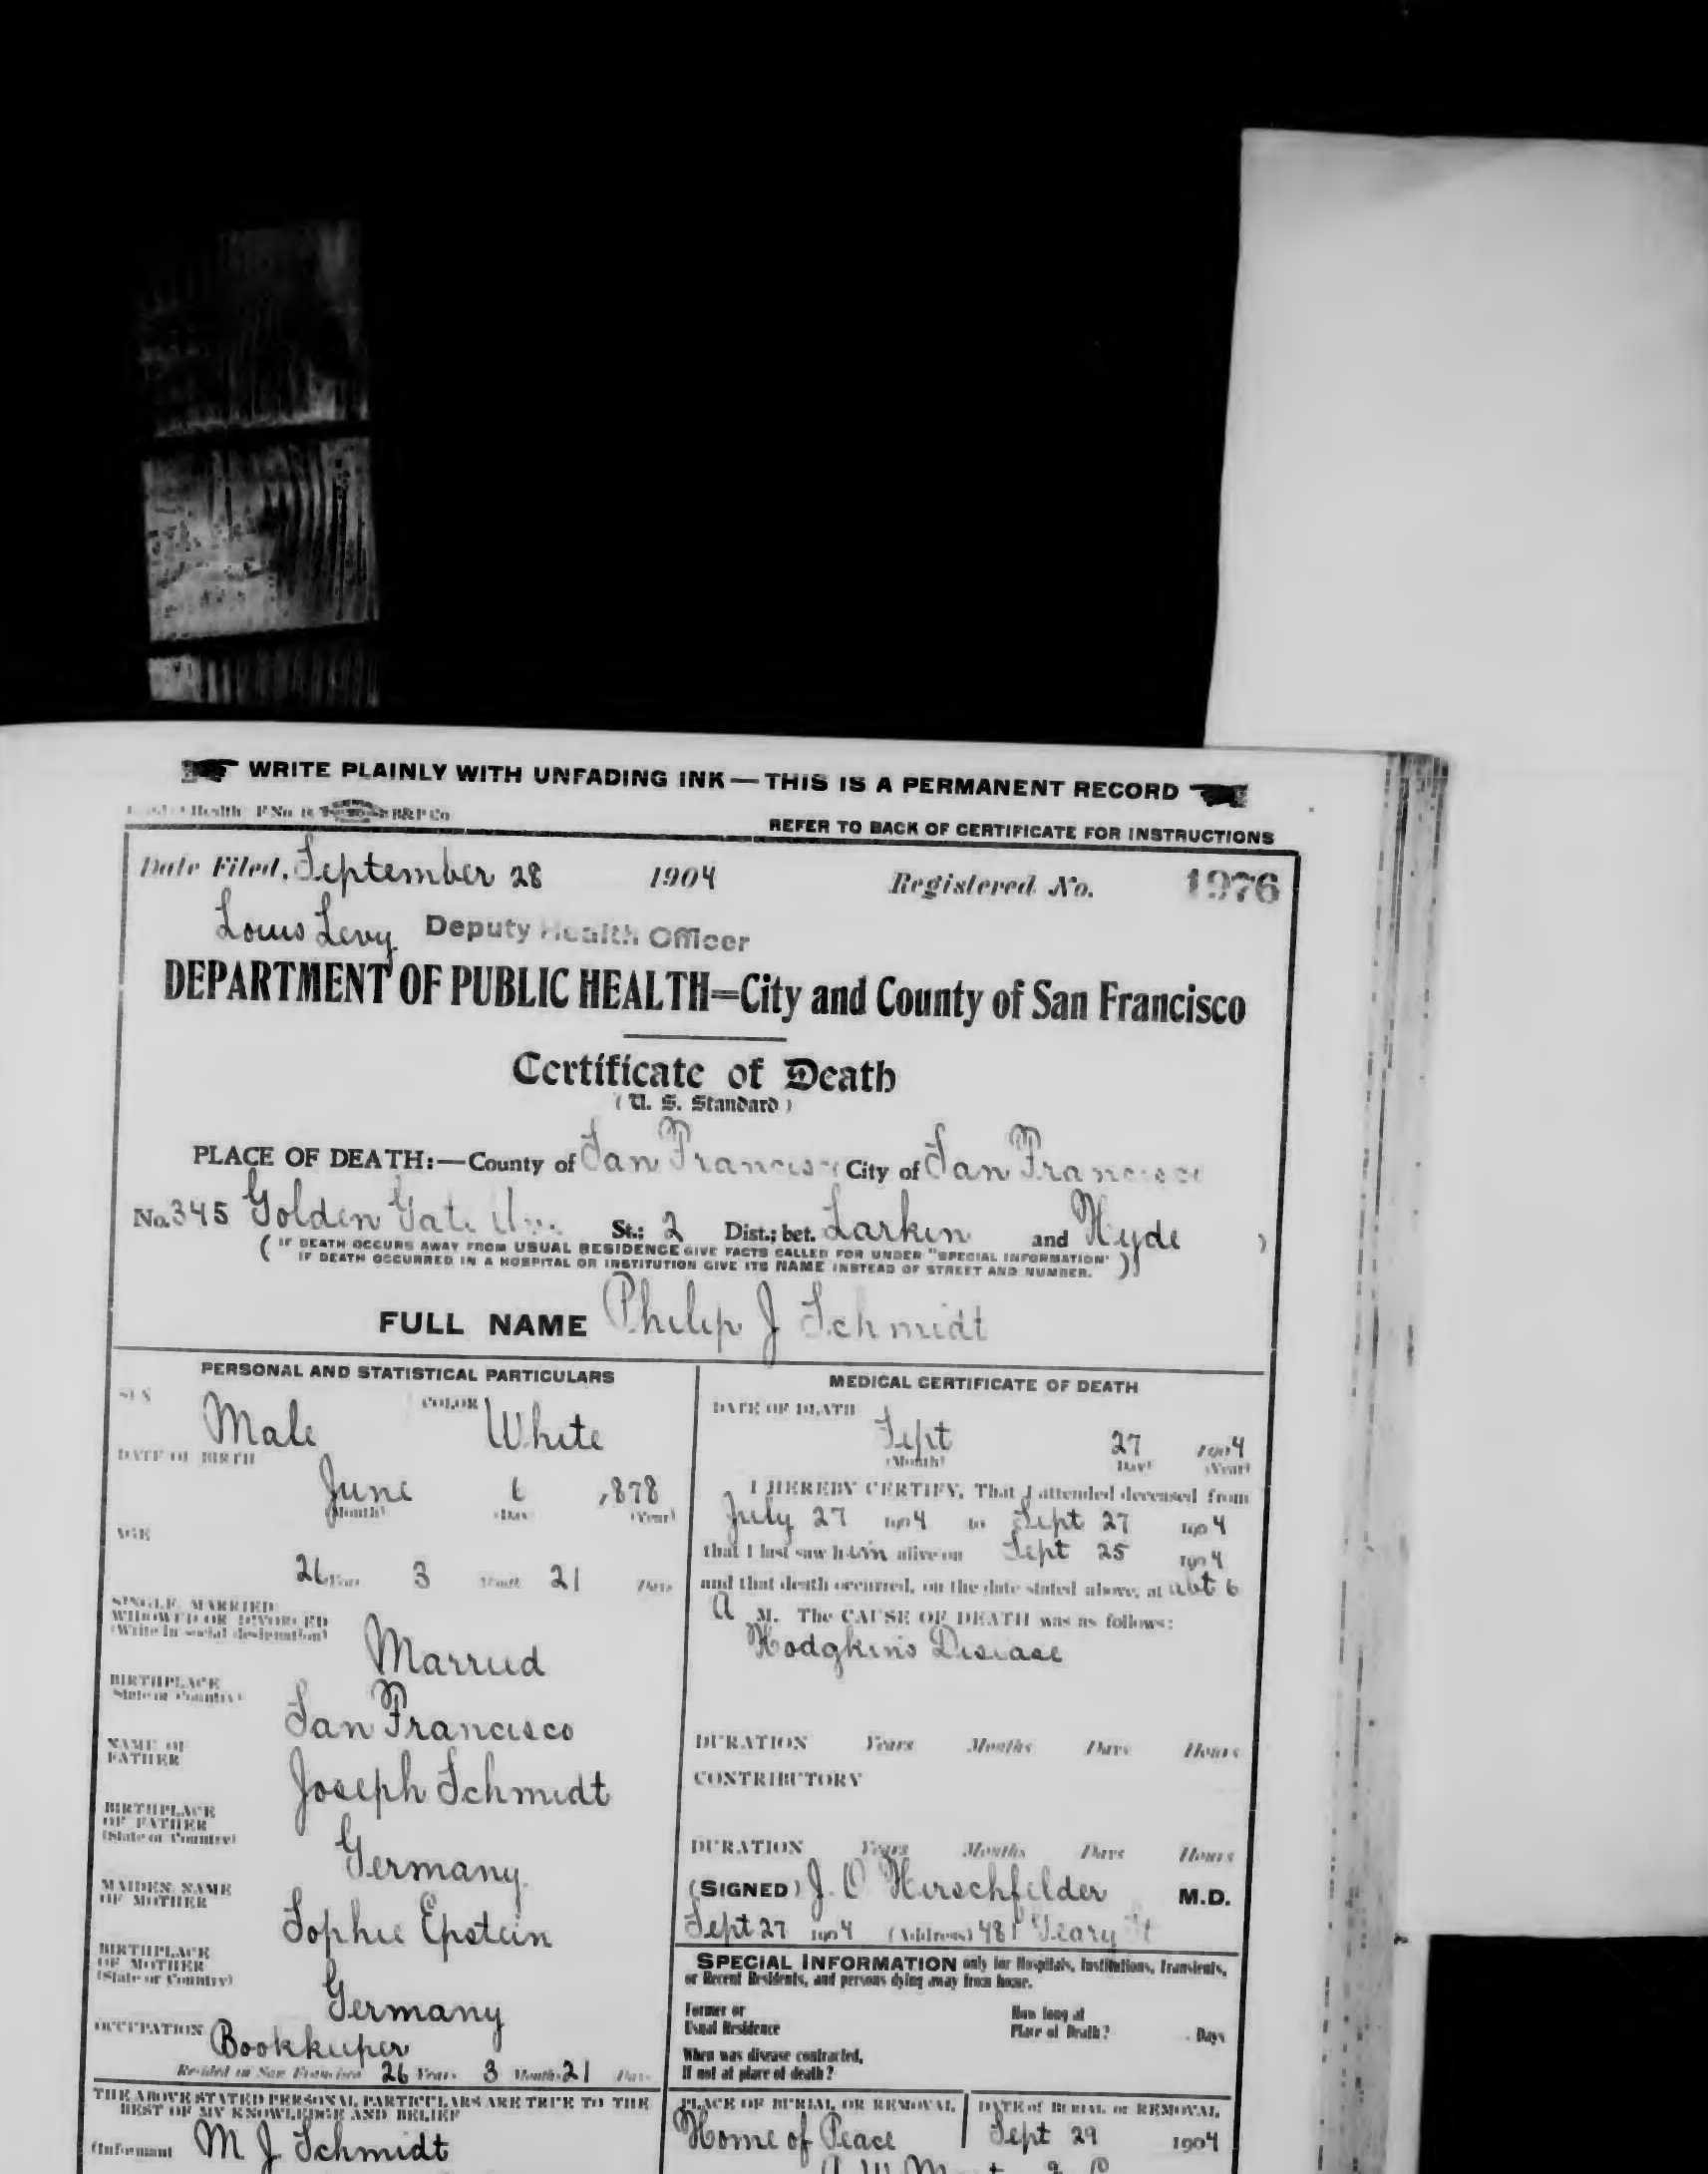 WRITE PLAINLY WITH UNFADING INK — THIS IS A PERMANENT RECORD
Health B&P Co
REFER TO BACK OF CERTIFICATE FOR INSTRUCTIONS
Date Filed, September 28 1904 Registered No. 1976
Louis Levy Deputy Health Officer
DEPARTMENT OF PUBLIC HEALTH=City and County of San Francisco
Certificate of Death
(U. S. Standard)
PLACE OF DEATH:—County of San Francisco City of San Francisco
No. 345 Golden Gate Ave St.; 2 Dist.; bet. Larkin and Hyde )
( IF DEATH OCCURS AWAY FROM USUAL RESIDENCE GIVE FACTS CALLED FOR UNDER "SPECIAL INFORMATION"
IF DEATH OCCURRED IN A HOSPITAL OR INSTITUTION GIVE ITS NAME INSTEAD OF STREET AND NUMBER. )
FULL NAME Philip J Schmidt
PERSONAL AND STATISTICAL PARTICULARS
SEX Male COLOR White
DATE OF BIRTH
June 6 1878
(Month) (Day) (Year)
AGE
26 Years 3 Months 21 Days
SINGLE, MARRIED
WIDOWED OR DIVORCED
(Write in social designation)
Married
BIRTHPLACE
(State or Country)
San Francisco
NAME OF
FATHER
Joseph Schmidt
BIRTHPLACE
OF FATHER
(State or Country)
Germany
MAIDEN NAME
OF MOTHER
Sophie Epstein
BIRTHPLACE
OF MOTHER
(State or Country)
Germany
OCCUPATION Bookkeeper
Resided in San Francisco 26 Years 3 Months 21 Days
THE ABOVE STATED PERSONAL PARTICULARS ARE TRUE TO THE
BEST OF MY KNOWLEDGE AND BELIEF
(Informant M J Schmidt
MEDICAL CERTIFICATE OF DEATH
DATE OF DEATH
Sept 27 1904
(Month) (Day) (Year)
I HEREBY CERTIFY, That I attended deceased from
July 27 1904 to Sept 27 1904
that I last saw him alive on Sept 25 1904
and that death occurred, on the date stated above, at abt 6
A M. The CAUSE OF DEATH was as follows:
Hodgkin's Disease
DURATION Years Months Days Hours
CONTRIBUTORY
DURATION Years Months Days Hours
(SIGNED) J. O Hirschfelder M.D.
Sept 27 1904 (Address) 481 Geary St
SPECIAL INFORMATION only for Hospitals, Institutions, Transients,
or Recent Residents, and persons dying away from home.
Former or
Usual Residence
How long at
Place of Death? Days
When was disease contracted,
If not at place of death?
PLACE OF BURIAL OR REMOVAL
Home of Peace
DATE of BURIAL or REMOVAL
Sept 29 1904